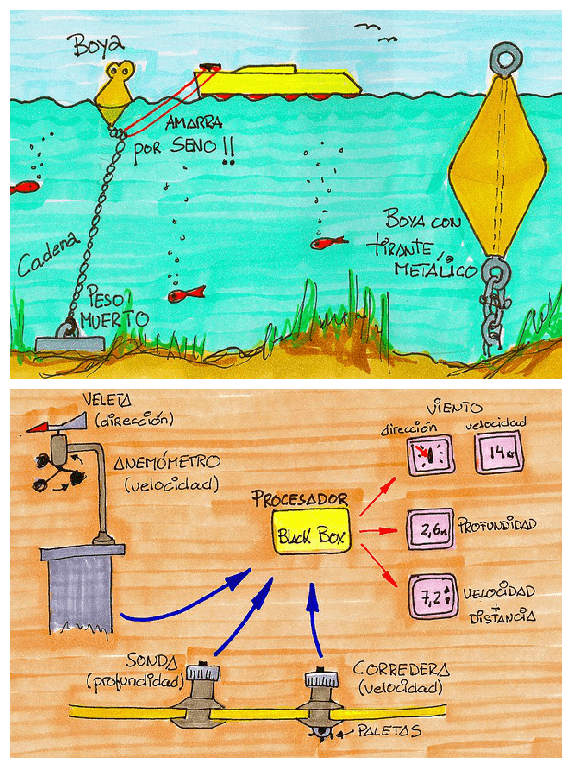 Boya
AMARRA
por SENO !!
Cadena
PESO
MUERTO
BOYA CON
TIRANTE
METÁLICO
VELETA
(dirección)
ANEMÓMETRO
(velocidad)
VIENTO
dirección
velocidad
14
PROCESADOR
Black Box
2,6m
PROFUNDIDAD
7,2
VELOCIDAD
+
DISTANCIA
SONDA
(profundidad)
CORREDERA
(velocidad)
PALETAS